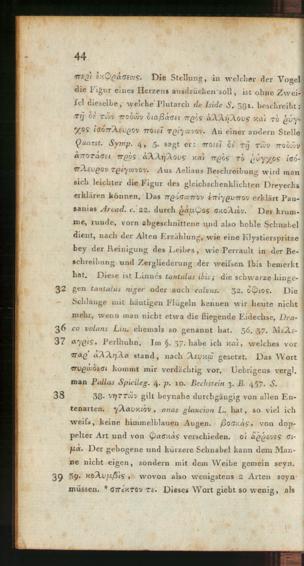 44
περὶ ἐκφράσεως. Die Stellung, in welcher der Vogel
die Figur eines Herzens ausdrücken soll, ist ohne Zwei-
fel dieselbe, welche Plutarch de Iside S. 381. beschreibt:
τῇ δὲ τῶν ποδῶν διαβάσει πρὸς ἀλλήλους καὶ πρὸς τὸ ῥύγ-
χος ἰσόπλευρον ποιεῖ τρίγωνον. An einer andern Stelle
Quaest. Symp. 4, 5. sagt er: ποιεῖ δὲ τῇ τῶν ποδῶν
ἀποτάσει πρὸς ἀλλήλους καὶ πρὸς τὸ ῥύγχος ἰσό-
πλευρον τρίγωνον. Aus Aelians Beschreibung wird man
sich leichter die Figur des gleichschenklichten Dreyecks
erklären können. Das πρόσωπον ἐπίγρυπον erklärt Pau-
sanias Arcad. c. 22. durch ῥάμφος σκολιόν. Der krum-
me, runde, vorn abgeschnittene und also hohle Schnabel
dient, nach der Alten Erzählung, wie eine Klystierspritze
bey der Reinigung des Leibes, wie Perrault in der Be-
schreibung und Zergliederung der weissen Ibis bemerkt
hat. Diese ist Linnés tantalus ibis; die schwarze hinge-
32 gen tantalus niger oder auch calvus. 32. ὄφιος. Die
Schlange mit häutigen Flügeln kennen wir heute nicht
mehr, wenn man nicht etwa die fliegende Eidechse, Dra-
36 co volans Lin. ehemals so genannt hat. 36. 37. Μελε-
37 αγρίς. Perlhuhn. Im §. 37. habe ich καὶ, welches vor
παρ' ἄλληλα stand, nach λευκῷ gesetzt. Das Wort
πυρώδεσι kommt mir verdächtig vor. Uebrigens vergl.
man Pallas Spicileg. 4. p. 10. Bechstein 3. B. 457. S.
38 38. νηττῶν gilt beynahe durchgängig von allen En-
tenarten. γλαυκίον, anas glaucion L. hat, so viel ich
weiss, keine himmelblauen Augen. βοσκὰς, von dop-
pelter Art und von φασκὰς verschieden. οἱ ἄρρενες σι-
μὰ. Der gebogene und kürzere Schnabel kann dem Man-
ne nicht eigen, sondern mit dem Weibe gemein seyn.
39 39. κολυμβὶς, wovon also wenigstens 2 Arten seyn
müssen. * σπέκτον τε. Dieses Wort giebt so wenig, als